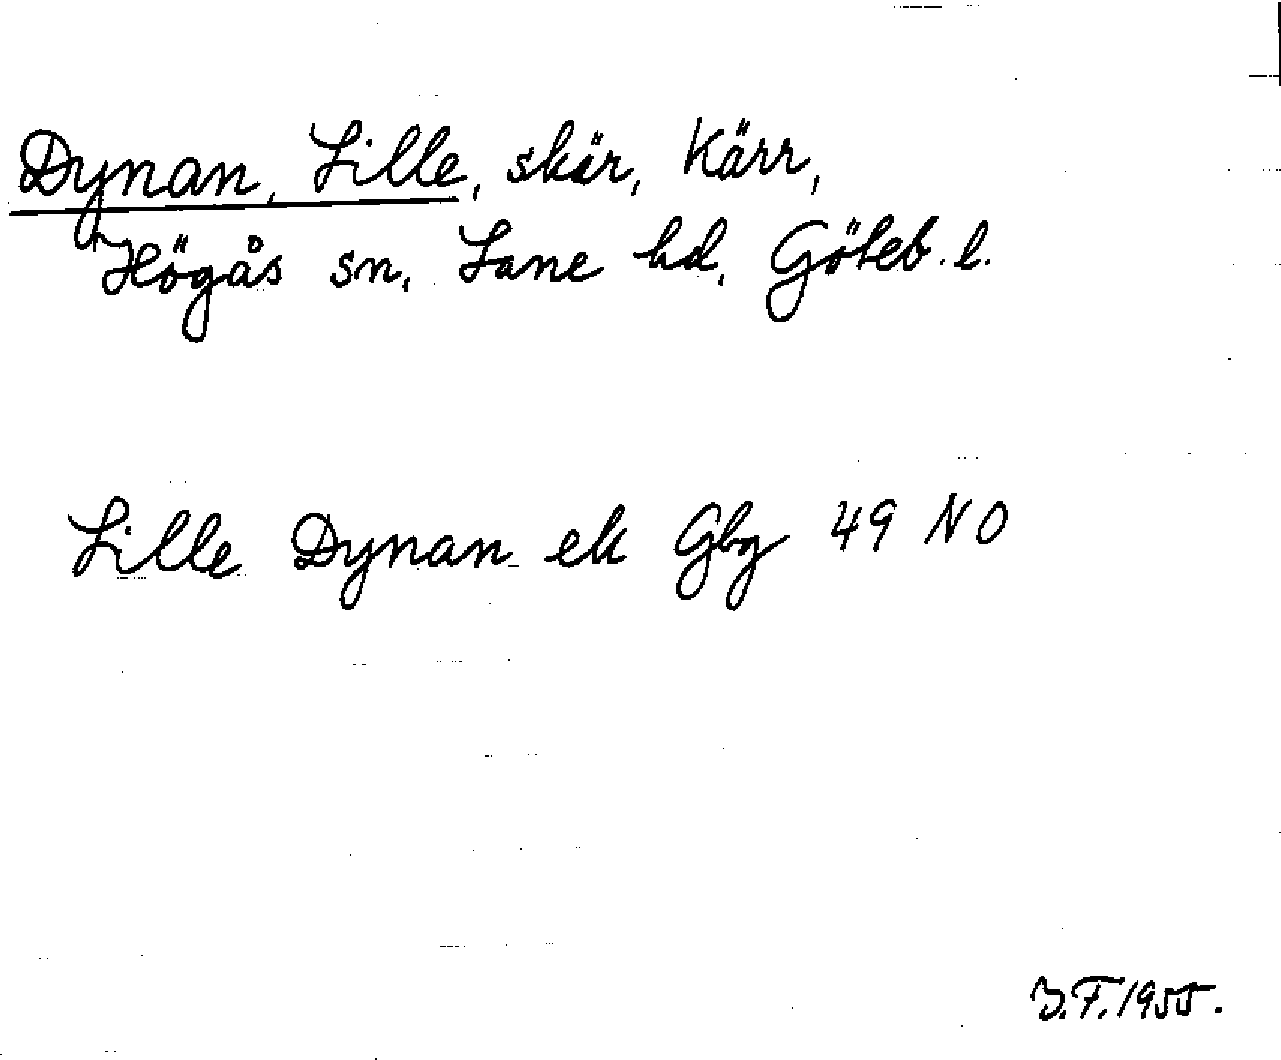 Dynan, Lille, skär, Kärr,
Högås sn, Lane hd, Göteb. l.
Lille Dynan ek Gbg 49 NO
B.F. 1955.